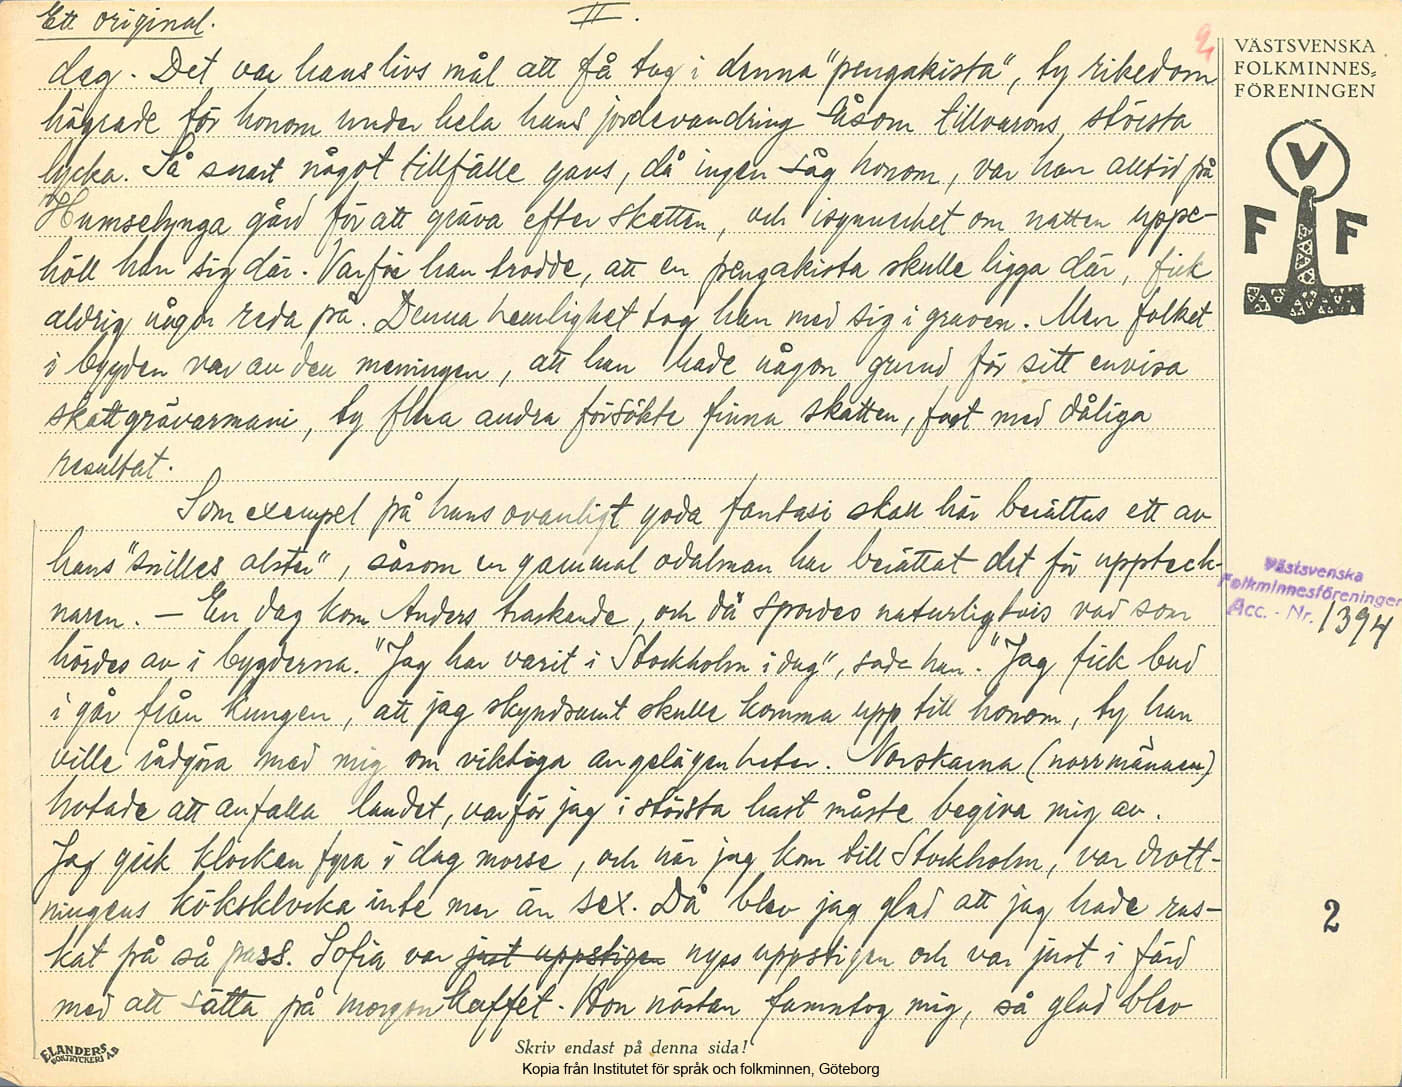 Ett original.
II.
2,
dag. Det var hans livs mål att få tag i denna "pengakista", ty rikedom
hägrade för honom under hela hans jordevandring såsom tillvarons största
lycka. Så snart något tillfälle gavs, då ingen såg honom, var han alltid på
Humselynga gård för att gräva efter skatten, och isynnerhet om natten uppe-
höll han sig där. Varför han trodde, att en pengakista skulle ligga där, fick
aldrig någon reda på. Denna hemlighet tog han med sig i graven. Men folket
i bygden var av den meningen, att han hade någon grund för sitt envisa
skattgrävarmani, ty flera andra försökte finna skatten, fast med dåliga
resultat.
Som exempel på hans ovanligt goda fantasi skall här berättas ett av
hans "snilles alster", såsom en gammal odalman har berättat det för uppteck-
naren. — En dag kom Anders traskande, och då spordes naturligtvis vad som
hördes av i bygderna. "Jag har varit i Stockholm i dag", sade han. "Jag fick bud
i går från kungen, att jag skyndsamt skulle komma upp till honom, ty han
ville rådgöra med mig om viktiga angelägenheter. Norskarna (norrmännen)
hotade att anfalla landet, varför jag i största hast måste begiva mig av.
Jag gick klockan fyra i dag morse, och när jag kom till Stockholm, var drott-
ningens köksklocka inte mer än sex. Då blev jag glad att jag hade ras-
kat på så pass. Sofia var just uppstigen nyss uppstigen och var just i färd
med att sätta på morgonkaffet. Hon nästan famntog mig, så glad blev
VÄSTSVENSKA
FOLKMINNES-
FÖRENINGEN
V
F F
Västsvenska
Folkminnesföreningen
Acc. - Nr. 1394
2
ELANDERS
BOKTRYCKERI AB
Skriv endast på denna sida!
Kopia från Institutet för språk och folkminnen, Göteborg